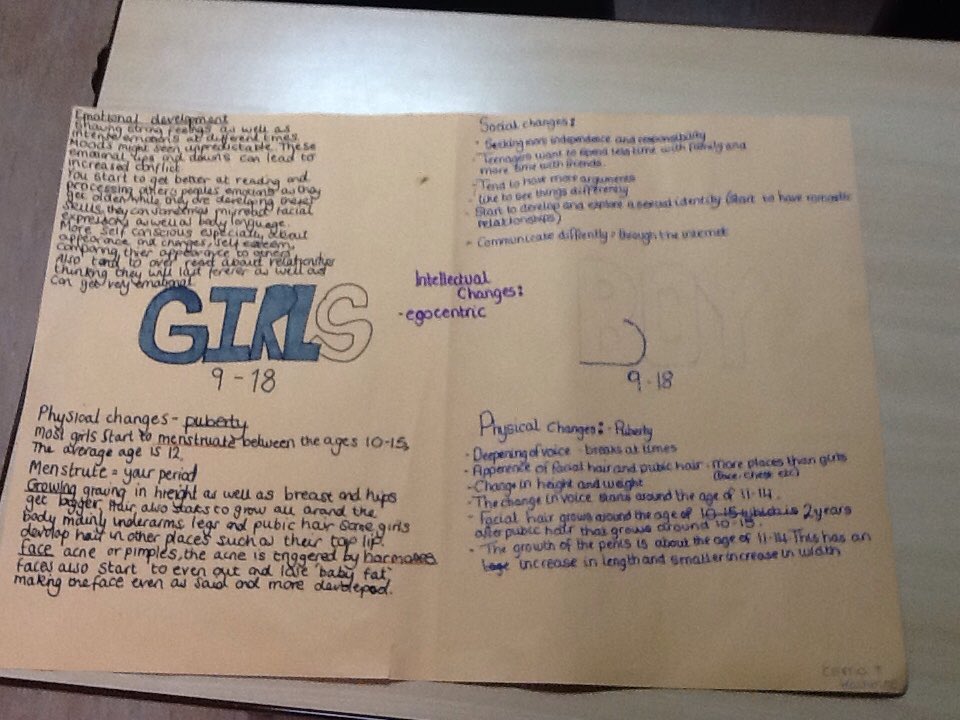 Emotional development
Showing strong feelings as well as
intense emotions at different times.
Moods might seem unpredictable. These
emotional ups and downs can lead to
increased conflict
You start to get better at reading and
processing others peoples emotions as they
get older. While they are developing these
skills, they can sometimes misread facial
expressions as well as body language.
More self conscious especially about
appearance and changes, self esteem,
comparing thier appearance to others.
Also tend to over react about relationships
thinking they will last forever as well as
can get very emotional
GIRLS
9-18
Physical changes - puberty
Most girls start to menstruate between the ages 10-15,
The average age is 12.
Menstrute = your period
Growing growing in hieght as well as breast and hips
get bigger. Hair also starts to grow all around the
body mainly underarms legs and pubic hair some girls
devlop hair in other places such as their top lip.
face acne or pimples, the acne is triggered by
faces also start to even out and lose "baby fat",
making the face even as said and more devloped.
Social changes:
- Seeking more independence and responsibility
- Teenagers want to spend less time with family and
more time with friends.
- Tend to have more arguments
- like to see things differently
- Start to develop and explore a sexual identity (Start to have romantic
relationships)
- Communicate differently = through the internet
Intellectual
Changes:
- egocentric
9-18
Physical Changes: - Puberty
- Deepening of voice - breaks at times
- Apperence of facial hair and pubic hair - more places than girls
(face, chest etc)
- Change in height and weight
- The change in voice starts around the age of 11-14.
- Facial hair grows around the age of 10-15 which is 2 years
after pubic hair that grows around 10-15.
- The growth of the penis is about the age of 11-14. This has an
increase in length and smaller increase in width